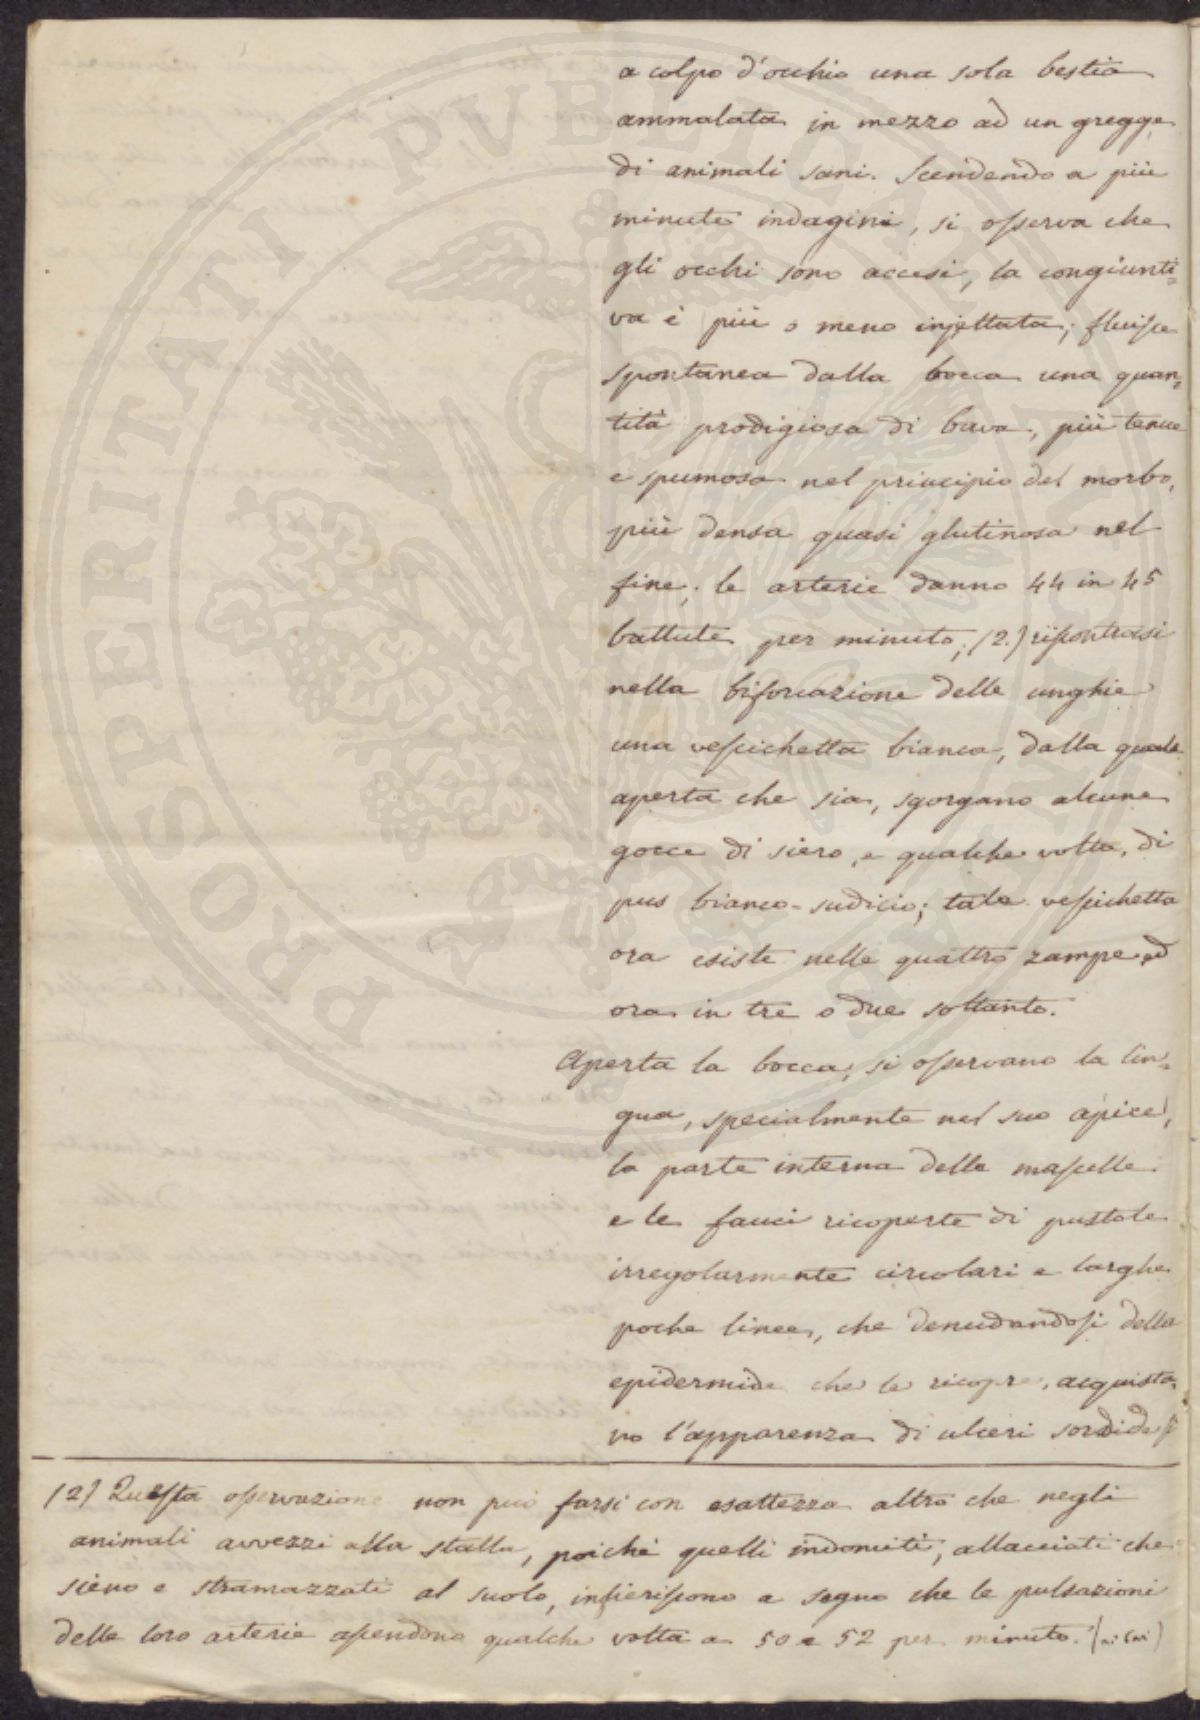 a colpo d'occhio una sola bestia
ammalata in mezzo ad un gregge
di animali sani. Scendendo a più
minute indagini, si osserva che
gli occhi sono accesi, la congiunti=
va è più o meno injettata; fluisce
spontanea dalla bocca una quan=
tità prodigiosa di bava, più tenue
e spumosa nel principio del morbo,
più densa quasi glutinosa nel
fine; le arterie danno 44 in 45
battute per minuto; (2.) riscontrasi
nella biforcazione delle unghie
una vescichetta bianca, dalla quale
aperta che sia, sgorgano alcune
gocce di siero, e qualche volta, di
pus bianco-sudicio; tale vescichetta
ora esiste nelle quattro zampe ed
ora in tre o due soltanto.
Aperta la bocca, si osservano la lin=
gua, specialmente nel suo apice,
la parte interna delle mascelle
e le fauci ricoperte di pustole
irregolarmente circolari e larghe
poche linee, che denudandosi della
epidermide che le ricopre, acquista=
no l'apparenza di ulceri sordide
(2) Questa osservazione non può farsi con esattezza altro che negli
animali avvezzi alla stalla, poichè quelli indomiti, allacciati che
sieno e stramazzati al suolo, infieriscono a segno che le pulsazioni
delle loro arterie ascendono qualche volta a 50 e 52 per minuto.
PROSPERITATI PVBLICAE